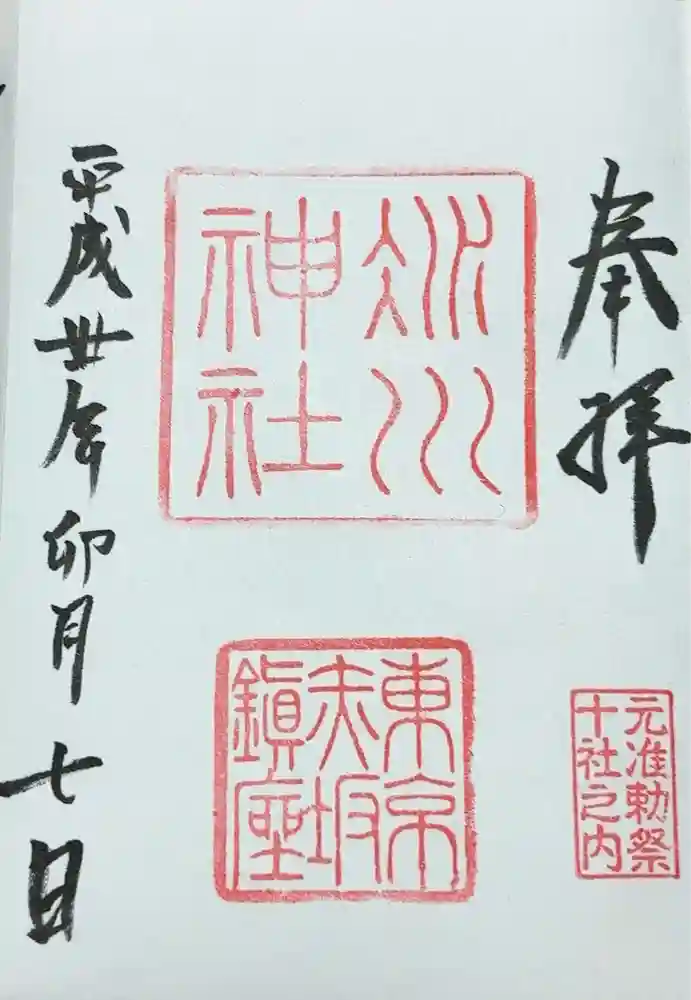 奉拝
元准勅祭
十社之内
冰川
神社
東京
赤坂
鎭座
平成卅年卯月七日